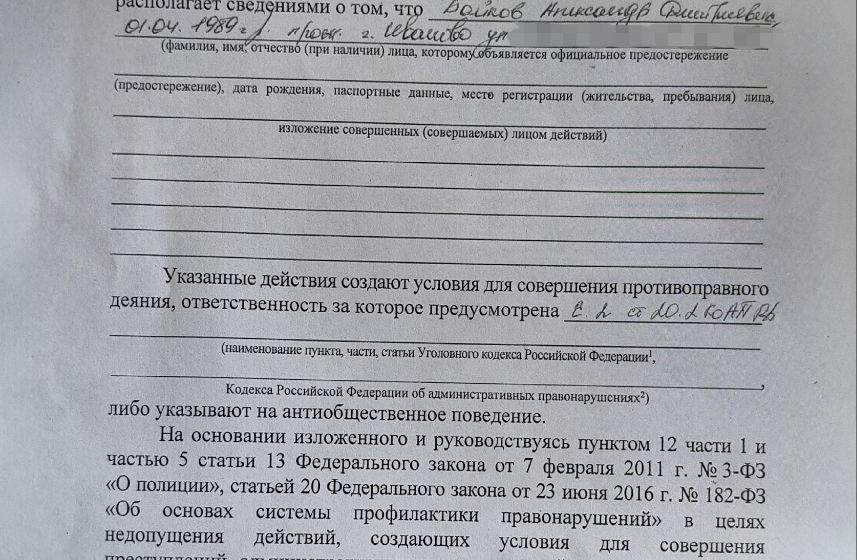 располагает сведениями о том, что Бойков Александр Дмитриевич,
01.04.1989 г.р. прож. г. Иваново ул
(фамилия, имя, отчество (при наличии) лица, которому объявляется официальное предостережение
(предостережение), дата рождения, паспортные данные, место регистрации (жительства, пребывания) лица,
изложение совершенных (совершаемых) лицом действий)
Указанные действия создают условия для совершения противоправного
деяния, ответственность за которое предусмотрена ст 20.2 КоАП РФ
(наименование пункта, части, статьи Уголовного кодекса Российской Федерации¹,
,
Кодекса Российской Федерации об административных правонарушениях²)
либо указывают на антиобщественное поведение.
На основании изложенного и руководствуясь пунктом 12 части 1 и
частью 5 статьи 13 Федерального закона от 7 февраля 2011 г. № 3-ФЗ
«О полиции», статьей 20 Федерального закона от 23 июня 2016 г. № 182-ФЗ
«Об основах системы профилактики правонарушений» в целях
недопущения действий, создающих условия для совершения